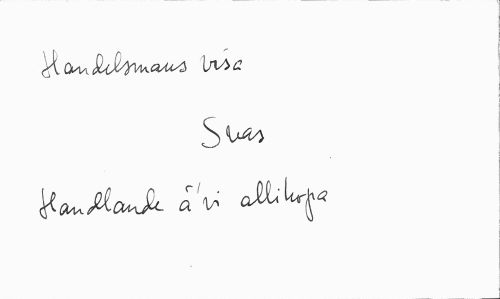 Handelsmans visa
Svas
Handlande ä'vi allihopa